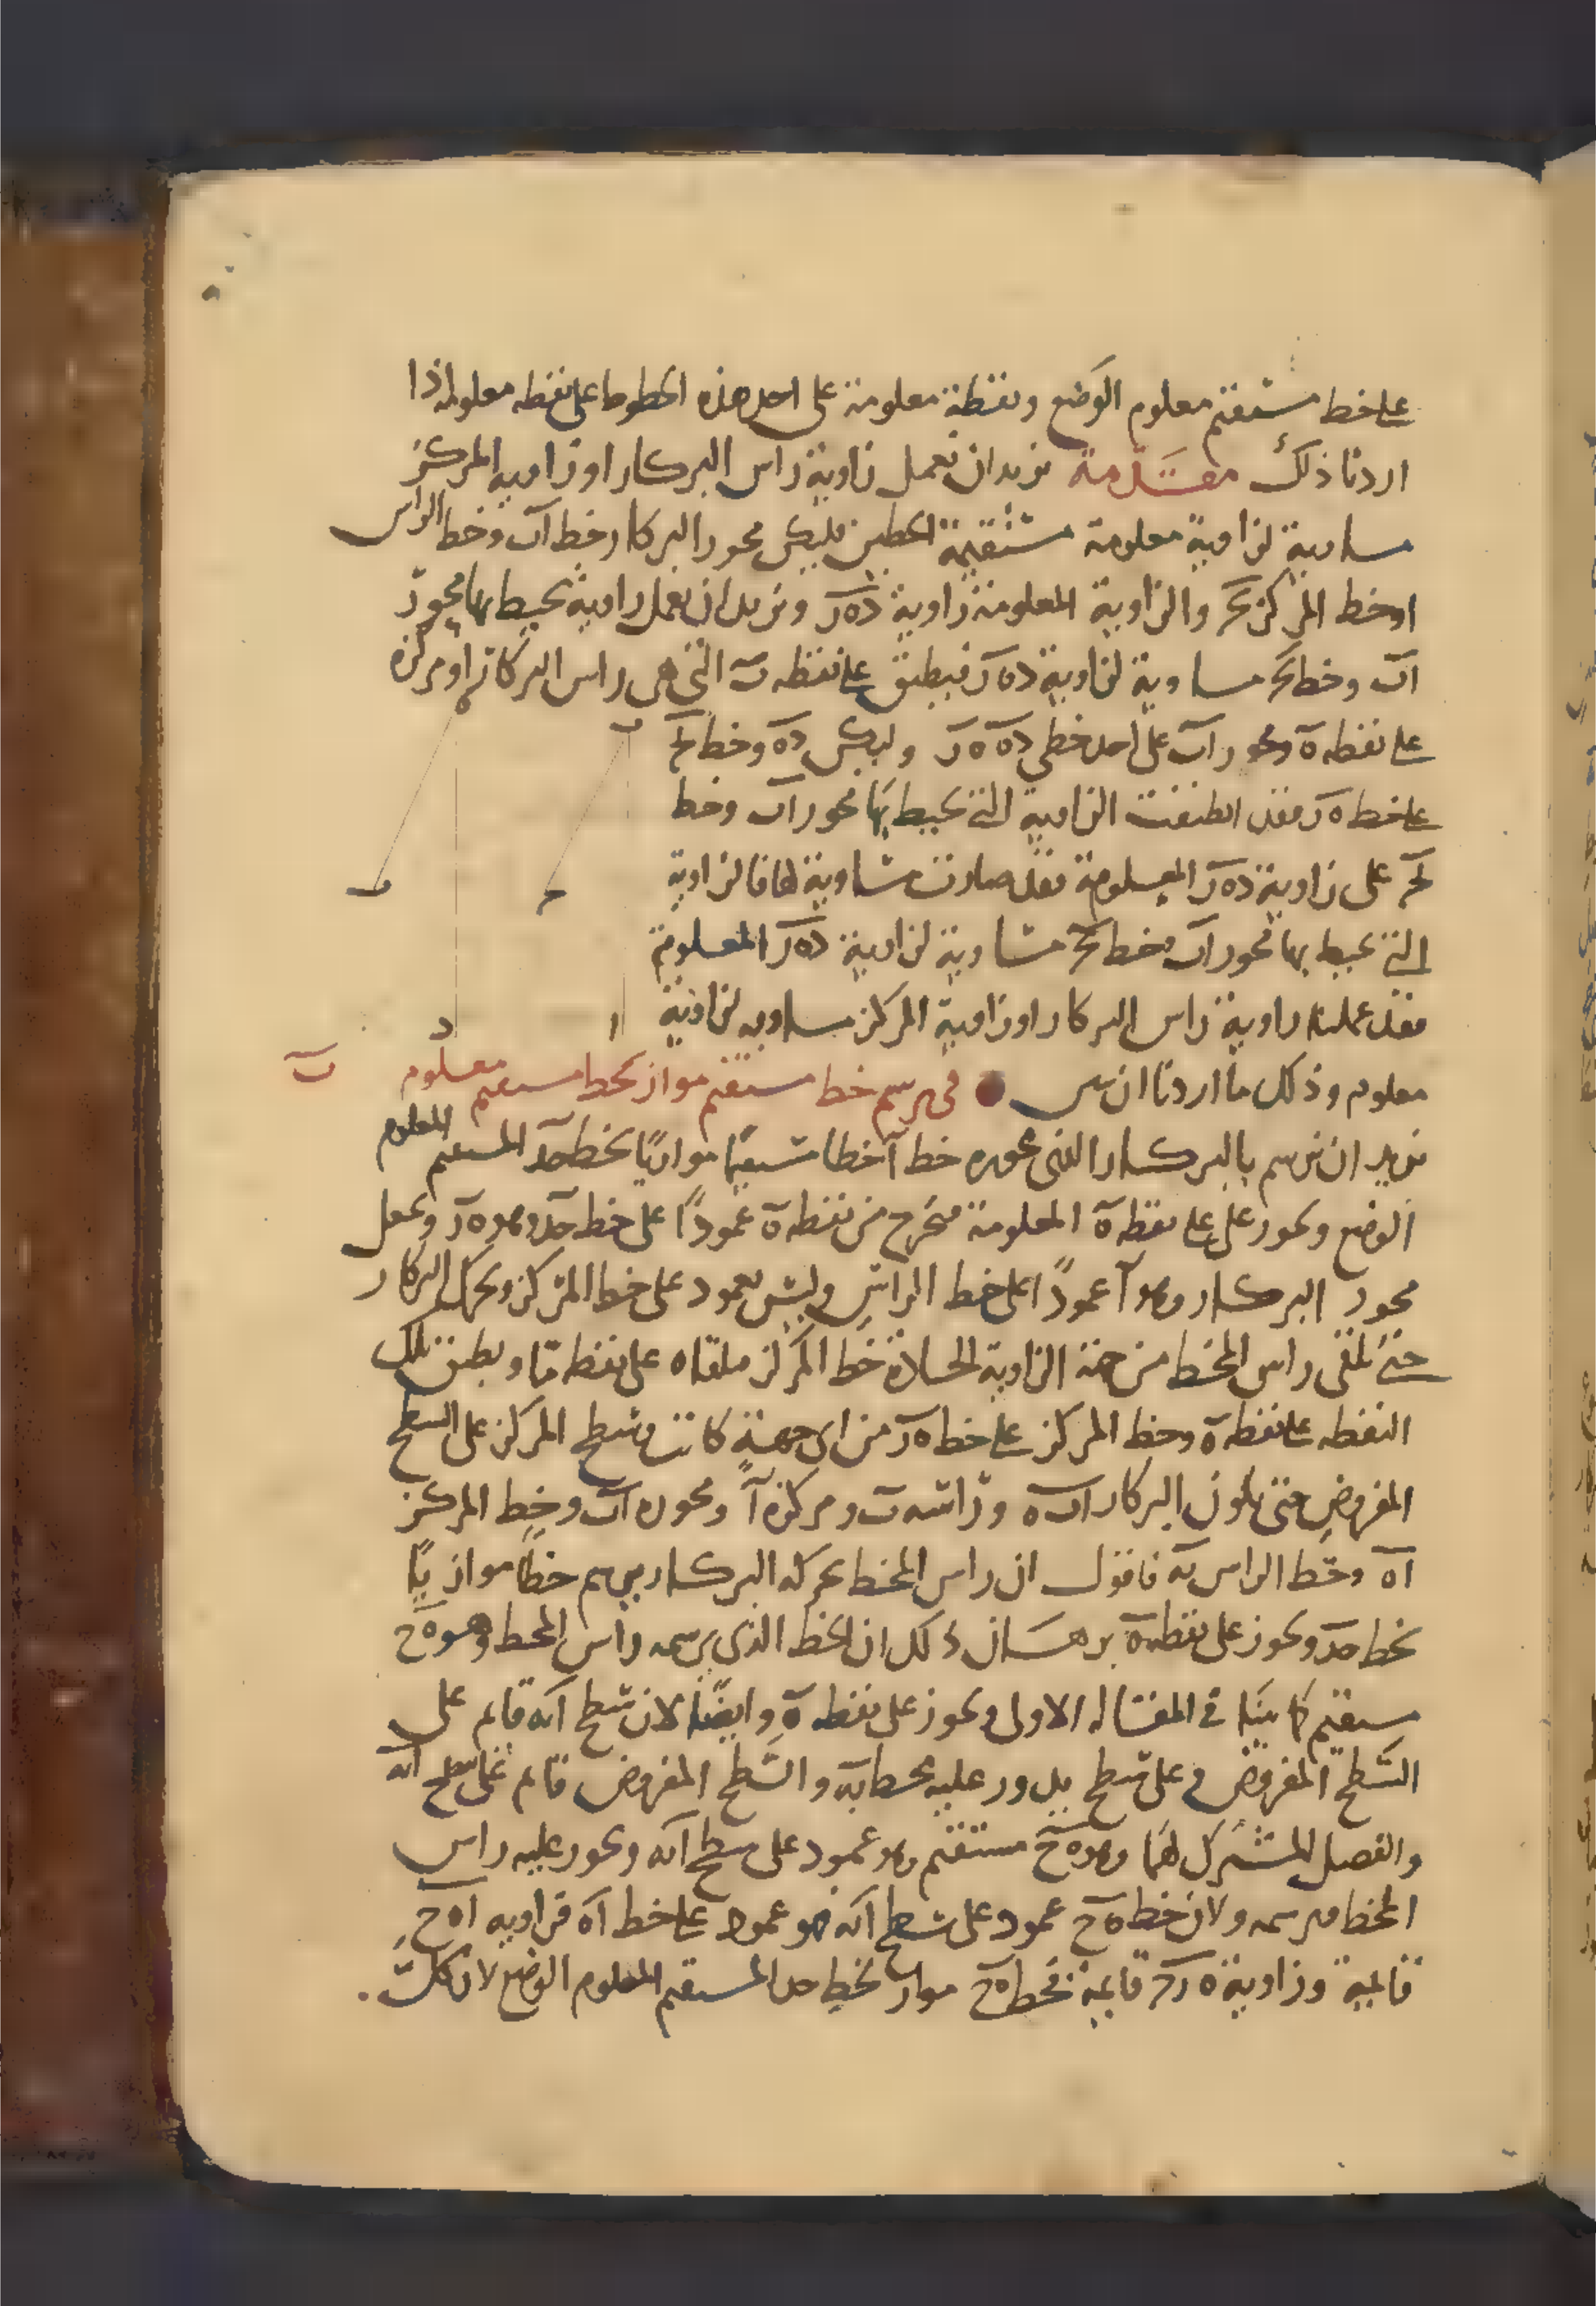 على خط مستقيم معلوم الوضع ونقطة معلومة على احد هذه الخطوط على نقطه معلومه اذا
اردنا ذلك مقدمة نريد ان نعمل زاوية راس البركار او زاوية المركز
مساوية لزاوية معلومة مستقيمة الخطين فليكن محور البركار خط اب وخط الراس
او خط المركز بح والزاوية المعلومة زاوية ده ر ونريد ان نعمل زاوية يحيط بها محور
اب وخط بح مساوية لزاوية ده ر فيطبق على نقطه ب التي هي راس البركار او مركزه
على نقطه ه ومحور اب على احد خطي ده ه ر وليكن ده وخط بح
على خط ه ر فقد انطبقت الزاوية التي يحيط بها محور اب وخط
بح على زاوية ده ر المعلومة فقد صارت مساوية لها فالزاوية
التي يحيط بها محور اب وخط بح مساوية لزاوية ده ر المعلومة
فقد عملنا زاوية راس البركار او زاوية المركز مساويه لزاوية
معلوم وذلك ما اردنا ان في رسم خط مستقيم مواز لخط مستقيم معلوم ب
نريد ان نرسم بالبركار الذي محوره خط ا خطا مستقيما موازيا لخط حد المستقيم المعلوم
الوضع ويجوز على نقطه ه المعلومة فنخرج من نقطه ه عمودا على خط حد وهو ه ر ونجعل
محور البركار وهو ا عمودا على خط الراس وليس بعمود على خط المركز ونحرك البركار
حتى تلقى راس المخط من جهة الزاوية الحادة خط المركز فلتلقاه على نقطه ما ونطبق تلك
النقطه على نقطه ه وخط المركز على خط ه ر من اى جهة كانت وسطح المركز على السطح
المفروض حتى يكون البركار اب ه وراسه ب ومركزه ا ومحوره اب وخط المركز
اه وخط الراس به فاقول ان راس المخط بحركه البركار يرسم خطا موازيا
لخط حد ويجوز على نقطه ه برهان ذلك ان الخط الذى يرسمه راس المخط وهو ه ح
مستقيم كما بينا فى المقاله الاولى ويجوز على نقطه ه وايضا لان سطح ابه قايم على
السطح المفروض وعلى سطح يدور عليه خط به والسطح المفروض قايم على سطح ابه
والفصل المشترك لهما وهو ه ح مستقيم وهو عمود على سطح ابه ويجوز عليه راس
المخط فيرسمه ولان خط ه ح عمود على سطح ابه فهو عمود على خط اه فزاويه ا ه ح
قايمة وزاوية ه ر ح قايمة فخط ه ح مواز لخط حد المستقيم المعلوم الوضع لان كانت